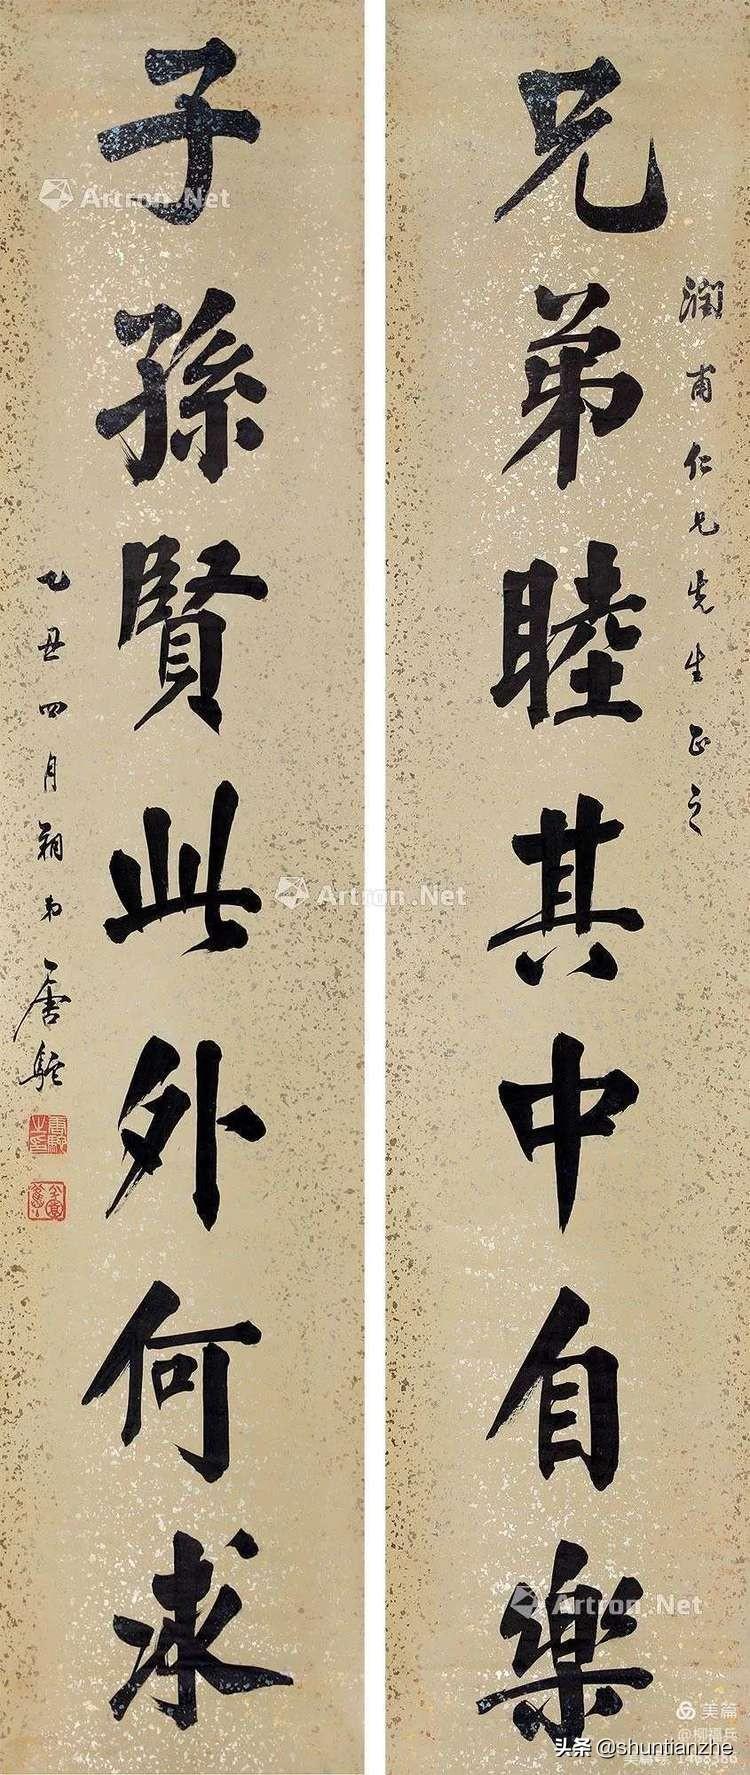 兄弟睦其中自樂
潤甫仁兄先生正之
子孫賢此外何求
乙丑四月朔弟唐駝
Artron.Net
Artron.Net
Artron.Net
美篇
@柳福兵
头条@shuntianzhe